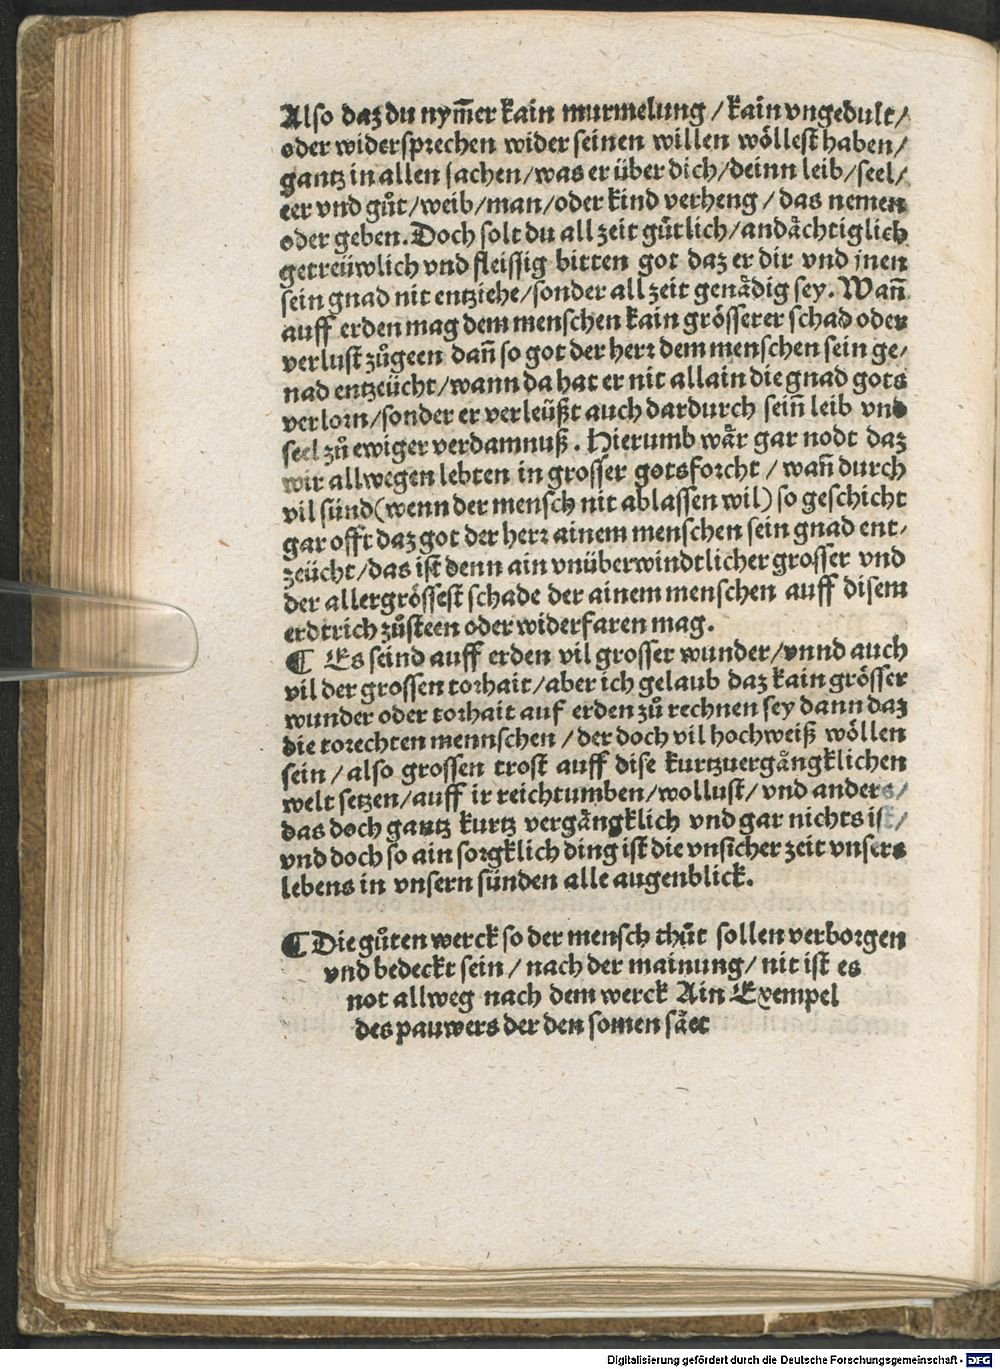 Also daz du nym̃er kain murmelung / kain vngedult /
oder widersprechen wider seinen willen wöllest haben /
gantz in allen sachen / was er über dich / deinn leib / seel /
eer vnd gůt / weib / man / oder kind verheng / das nemen
oder geben. Doch solt du all zeit gůtlich / andächtiglich
getreüwlich vnd fleissig bitten got daz er dir vnd jnen
sein gnad nit entziehe / sonder all zeit genädig sey. Wañ
auff erden mag dem menschen kain grösserer schad oder
verlust zůgeen dañ so got der herꝛ dem menschen sein ge/
nad entzeücht / wann da hat er nit allain die gnad gots
verlorn / sonder er verleüßt auch dardurch seiñ leib vnd
seel zů ewiger verdamnuß. Hierumb wär gar nodt daz
wir allwegen lebten in grosser gotsforcht / wañ durch
vil sünd (wenn der mensch nit ablassen wil) so geschicht
gar offt daz got der herꝛ ainem menschen sein gnad ent/
zeücht / das ist denn ain vnüberwindtlicher grosser vnd
der allergrössest schade der ainem menschen auff disem
erdtrich zůsteen oder widerfaren mag.
¶ Es seind auff erden vil grosser wunder / vnnd auch
vil der grossen torhait / aber ich gelaub daz kain grösser
wunder oder torhait auf erden zů rechnen sey dann daz
die torechten mennschen / der doch vil hochweiß wöllen
sein / also grossen trost auff dise kurtzuergängklichen
welt setzen / auff ir reichtumben / wollust / vnd anders /
das doch gantz kurtz vergängklich vnd gar nichts ist /
vnd doch so ain sorgklich ding ist die vnsicher zeit vnsers
lebens in vnsern sünden alle augenblick.
¶ Die gůten werck so der mensch thůt sollen verborgen
vnd bedeckt sein / nach der mainung / nit ist es
not allweg nach dem werck Ain Exempel
des pauwers der den somen säet
Digitalisierung gefördert durch die Deutsche Forschungsgemeinschaft - DFG